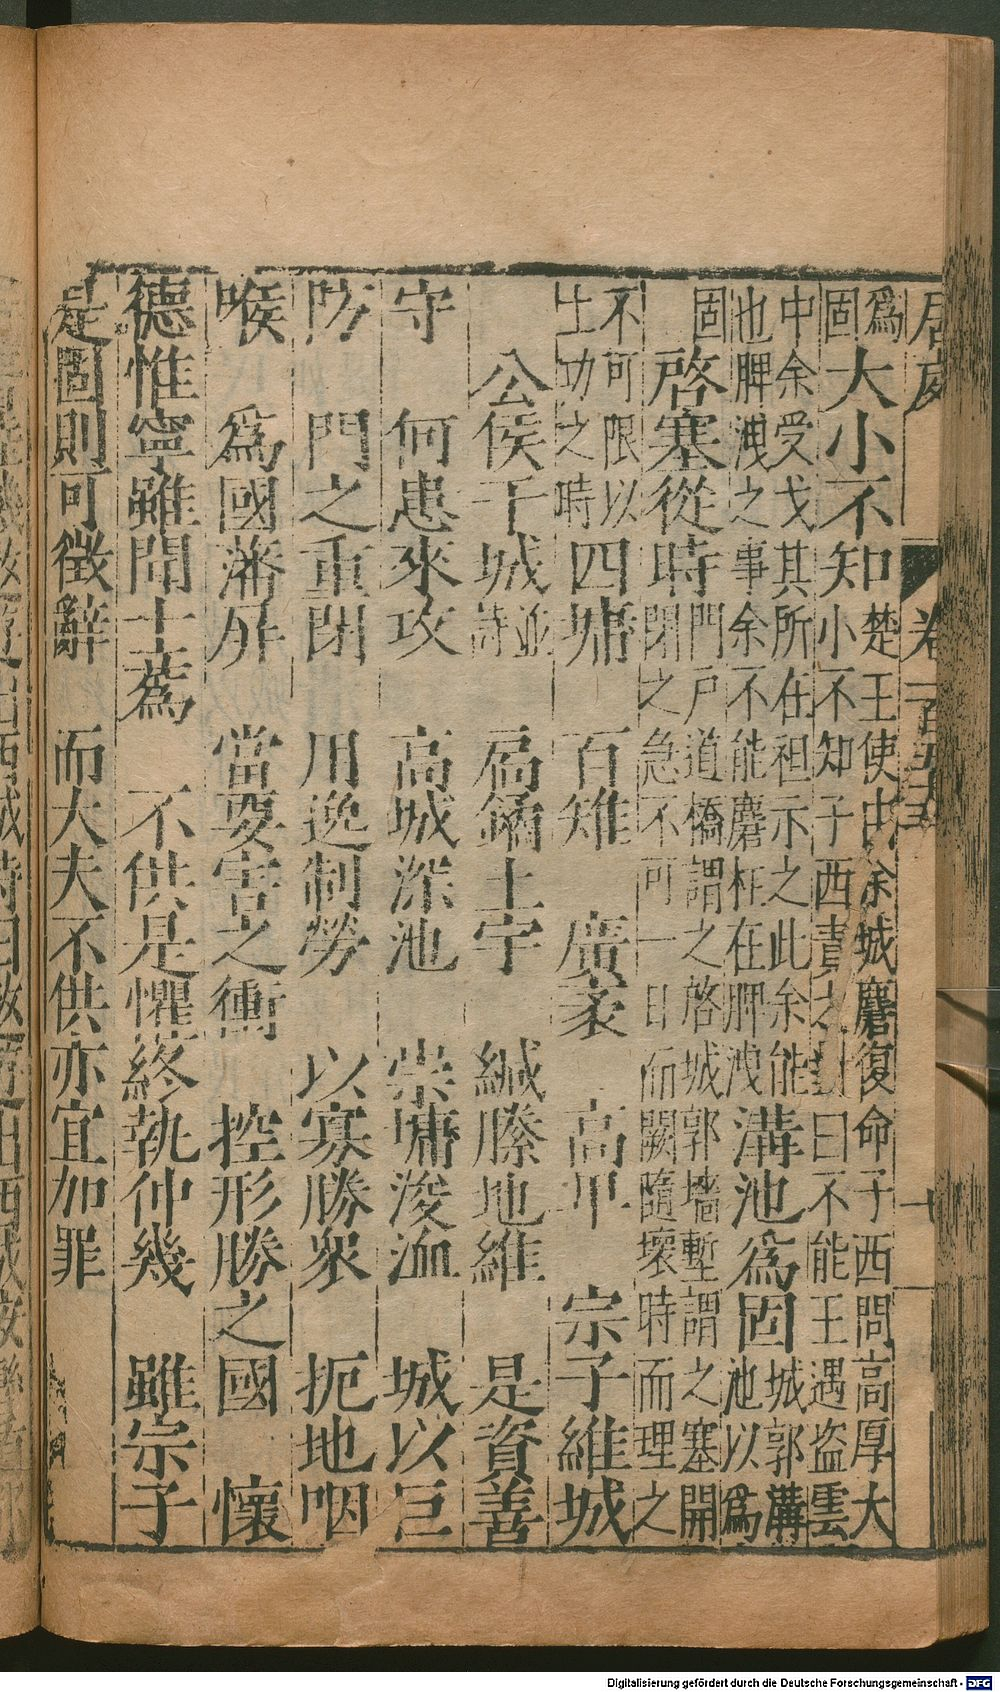 居處 卷一百五十五 十
爲 大小不知 楚王使由余城麇復命子西問高厚大
固 小不知子西責之對曰不能王遇盜雲
中余受戈其所在袒示之此余能 溝池爲固 城郭溝
也脾洩之事余不能麇枉在脾洩 池以爲
固 啓塞從時 門戶道橋謂之啓城郭墻塹謂之塞開
閉之急不可一日而闕隨壞時而理之
不可限以 四墉 百雉 廣袤 高卑 宗子維城
土功之時
公侯干城 並詩 扃鐍土宇 緘縢地維 是資善
守 何患來攻 高城深池 崇墉浚洫 城以巨
防 門之重閉 用逸制勞 以寡勝衆 扼地咽
喉 爲國藩屏 當要害之衝 控形勝之國 懷
德惟寧雖聞士蔿 不供是懼終執仲幾 雖宗子
是固則可徵辭 而大夫不供亦宜加罪
Digitalisierung gefördert durch die Deutsche Forschungsgemeinschaft - DFG